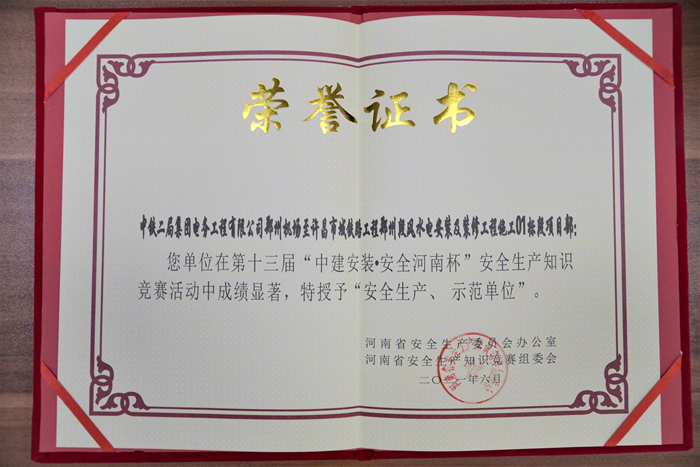 荣誉证书
中铁二局集团电务工程有限公司郑州机场至许昌市域铁路工程郑州段风水电安装及装修工程施工01标段项目部:
您单位在第十三届“中建安装•安全河南杯”安全生产知识
竞赛活动中成绩显著，特授予“安全生产、示范单位”。
河南省安全生产委员会办公室
河南省安全生产知识竞赛组委会
二〇二一年六月